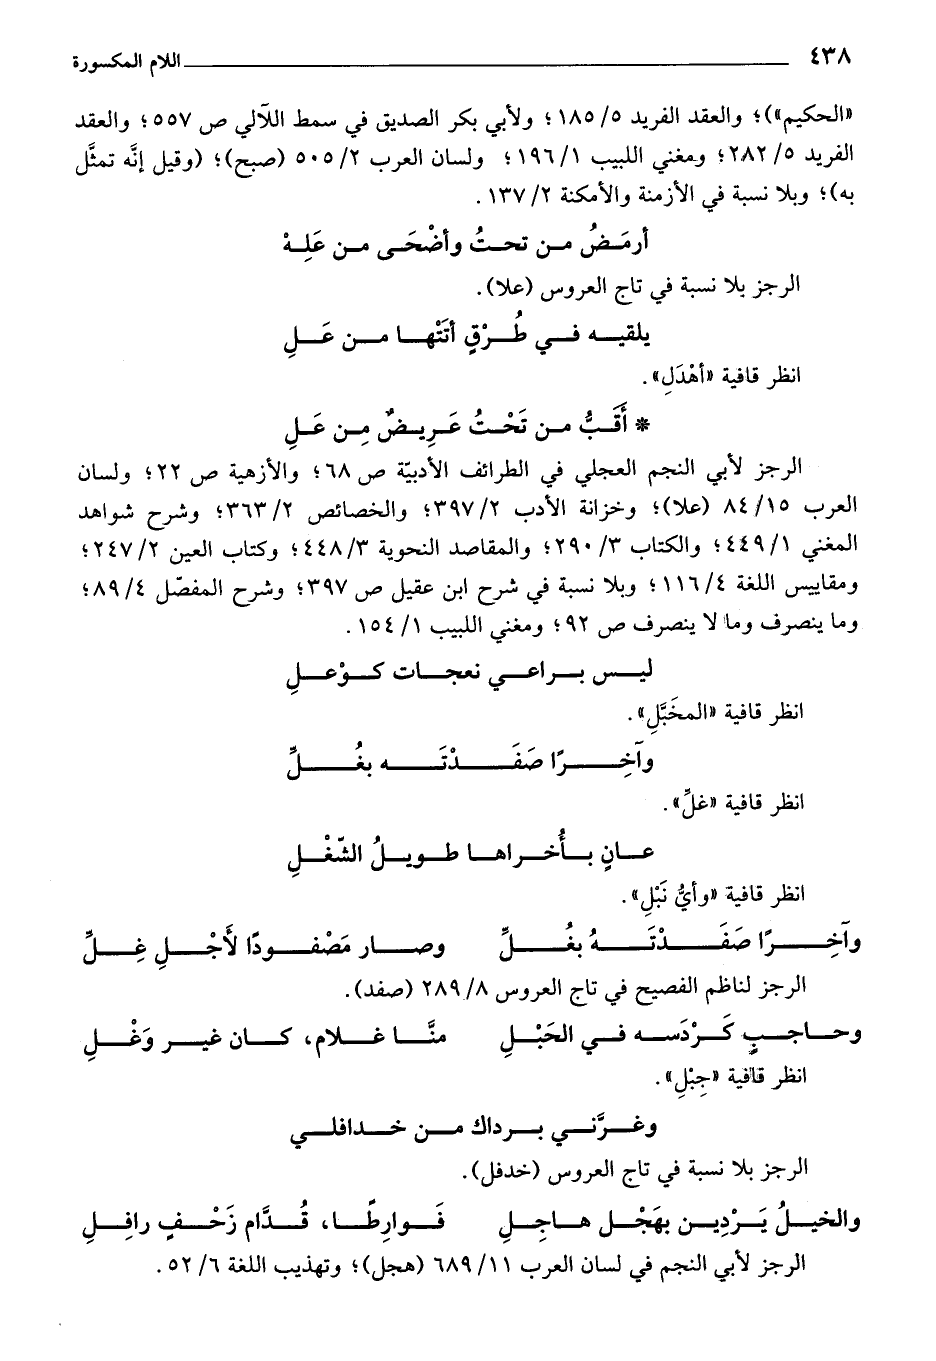 ٤٣٨ اللام المكسورة
«الحكيم»)؛ والعقد الفريد ١٨٥/٥؛ ولأبي بكر الصديق في سمط اللآلي ص ٥٥٧؛ والعقد
الفريد ٢٨٢/٥؛ ومغني اللبيب ١٩٦/١؛ ولسان العرب ٥٠٥/٢ (صبح)؛ (وقيل إنَّه تمثَّل
به)؛ وبلا نسبة في الأزمنة والأمكنة ١٣٧/٢.
أرمَضُ من تحتُ وأضْحَى من عَلِهْ
الرجز بلا نسبة في تاج العروس (علا).
يلقيه في طُرْقٍ أتَتْها من عَلِ
انظر قافية «أهْدَلِ».
* أَقَبُّ من تَحْتُ عَرِيضٌ مِن عَلِ
الرجز لأبي النجم العجلي في الطرائف الأدبيّة ص ٦٨؛ والأزهية ص ٢٢؛ ولسان
العرب ٨٤/١٥ (علا)؛ وخزانة الأدب ٣٩٧/٢؛ والخصائص ٣٦٣/٢؛ وشرح شواهد
المغني ٤٤٩/١؛ والكتاب ٢٩٠/٣؛ والمقاصد النحوية ٤٤٨/٣؛ وكتاب العين ٢٤٧/٢؛
ومقاييس اللغة ١١٦/٤؛ وبلا نسبة في شرح ابن عقيل ص ٣٩٧؛ وشرح المفصّل ٨٩/٤؛
وما ينصرف وما لا ينصرف ص ٩٢؛ ومغني اللبيب ١٥٤/١.
ليس براعي نعجات كوْعلِ
انظر قافية «المخَبَّلِ».
وآخِرًا صَفَدْتَه بغُلِّ
انظر قافية «غلِّ».
عانٍ بأُخراها طويلُ الشّغْلِ
انظر قافية «وأيُّ نَبْلِ».
وآخِرًا صَفَدْتَهُ بغُلِّ وصار مَصْفودًا لأَجْلِ غِلِّ
الرجز لناظم الفصيح في تاج العروس ٢٨٩/٨ (صفد).
وحاجبٍ كَرْدَسه في الحَبْلِ منَّا غلام، كان غير وَغْلِ
انظر قافية «جِبْلِ».
وغرَّني برداك من خدافلي
الرجز بلا نسبة في تاج العروس (خدفل).
والخيلُ يَرْدِين بهَجْلٍ هاجِلِ فَوارِطًا، قُدَّام زَحْفٍ رافِلِ
الرجز لأبي النجم في لسان العرب ٦٨٩/١١ (هجل)؛ وتهذيب اللغة ٥٢/٦.